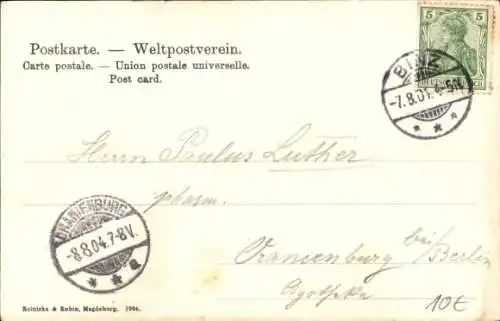 Postkarte. — Weltpostverein.
Carte postale. — Union postale universelle.
Post card.
5 5
BINZ
-7.8.01. 4-5N.
Herrn Paulus Luther
pharm.
ORANIENBURG
-8.8.04. 7-8V.
a
Oranienburg bei Berlin
Apotheke
Reinicke & Rubin, Magdeburg. 1904.
10€